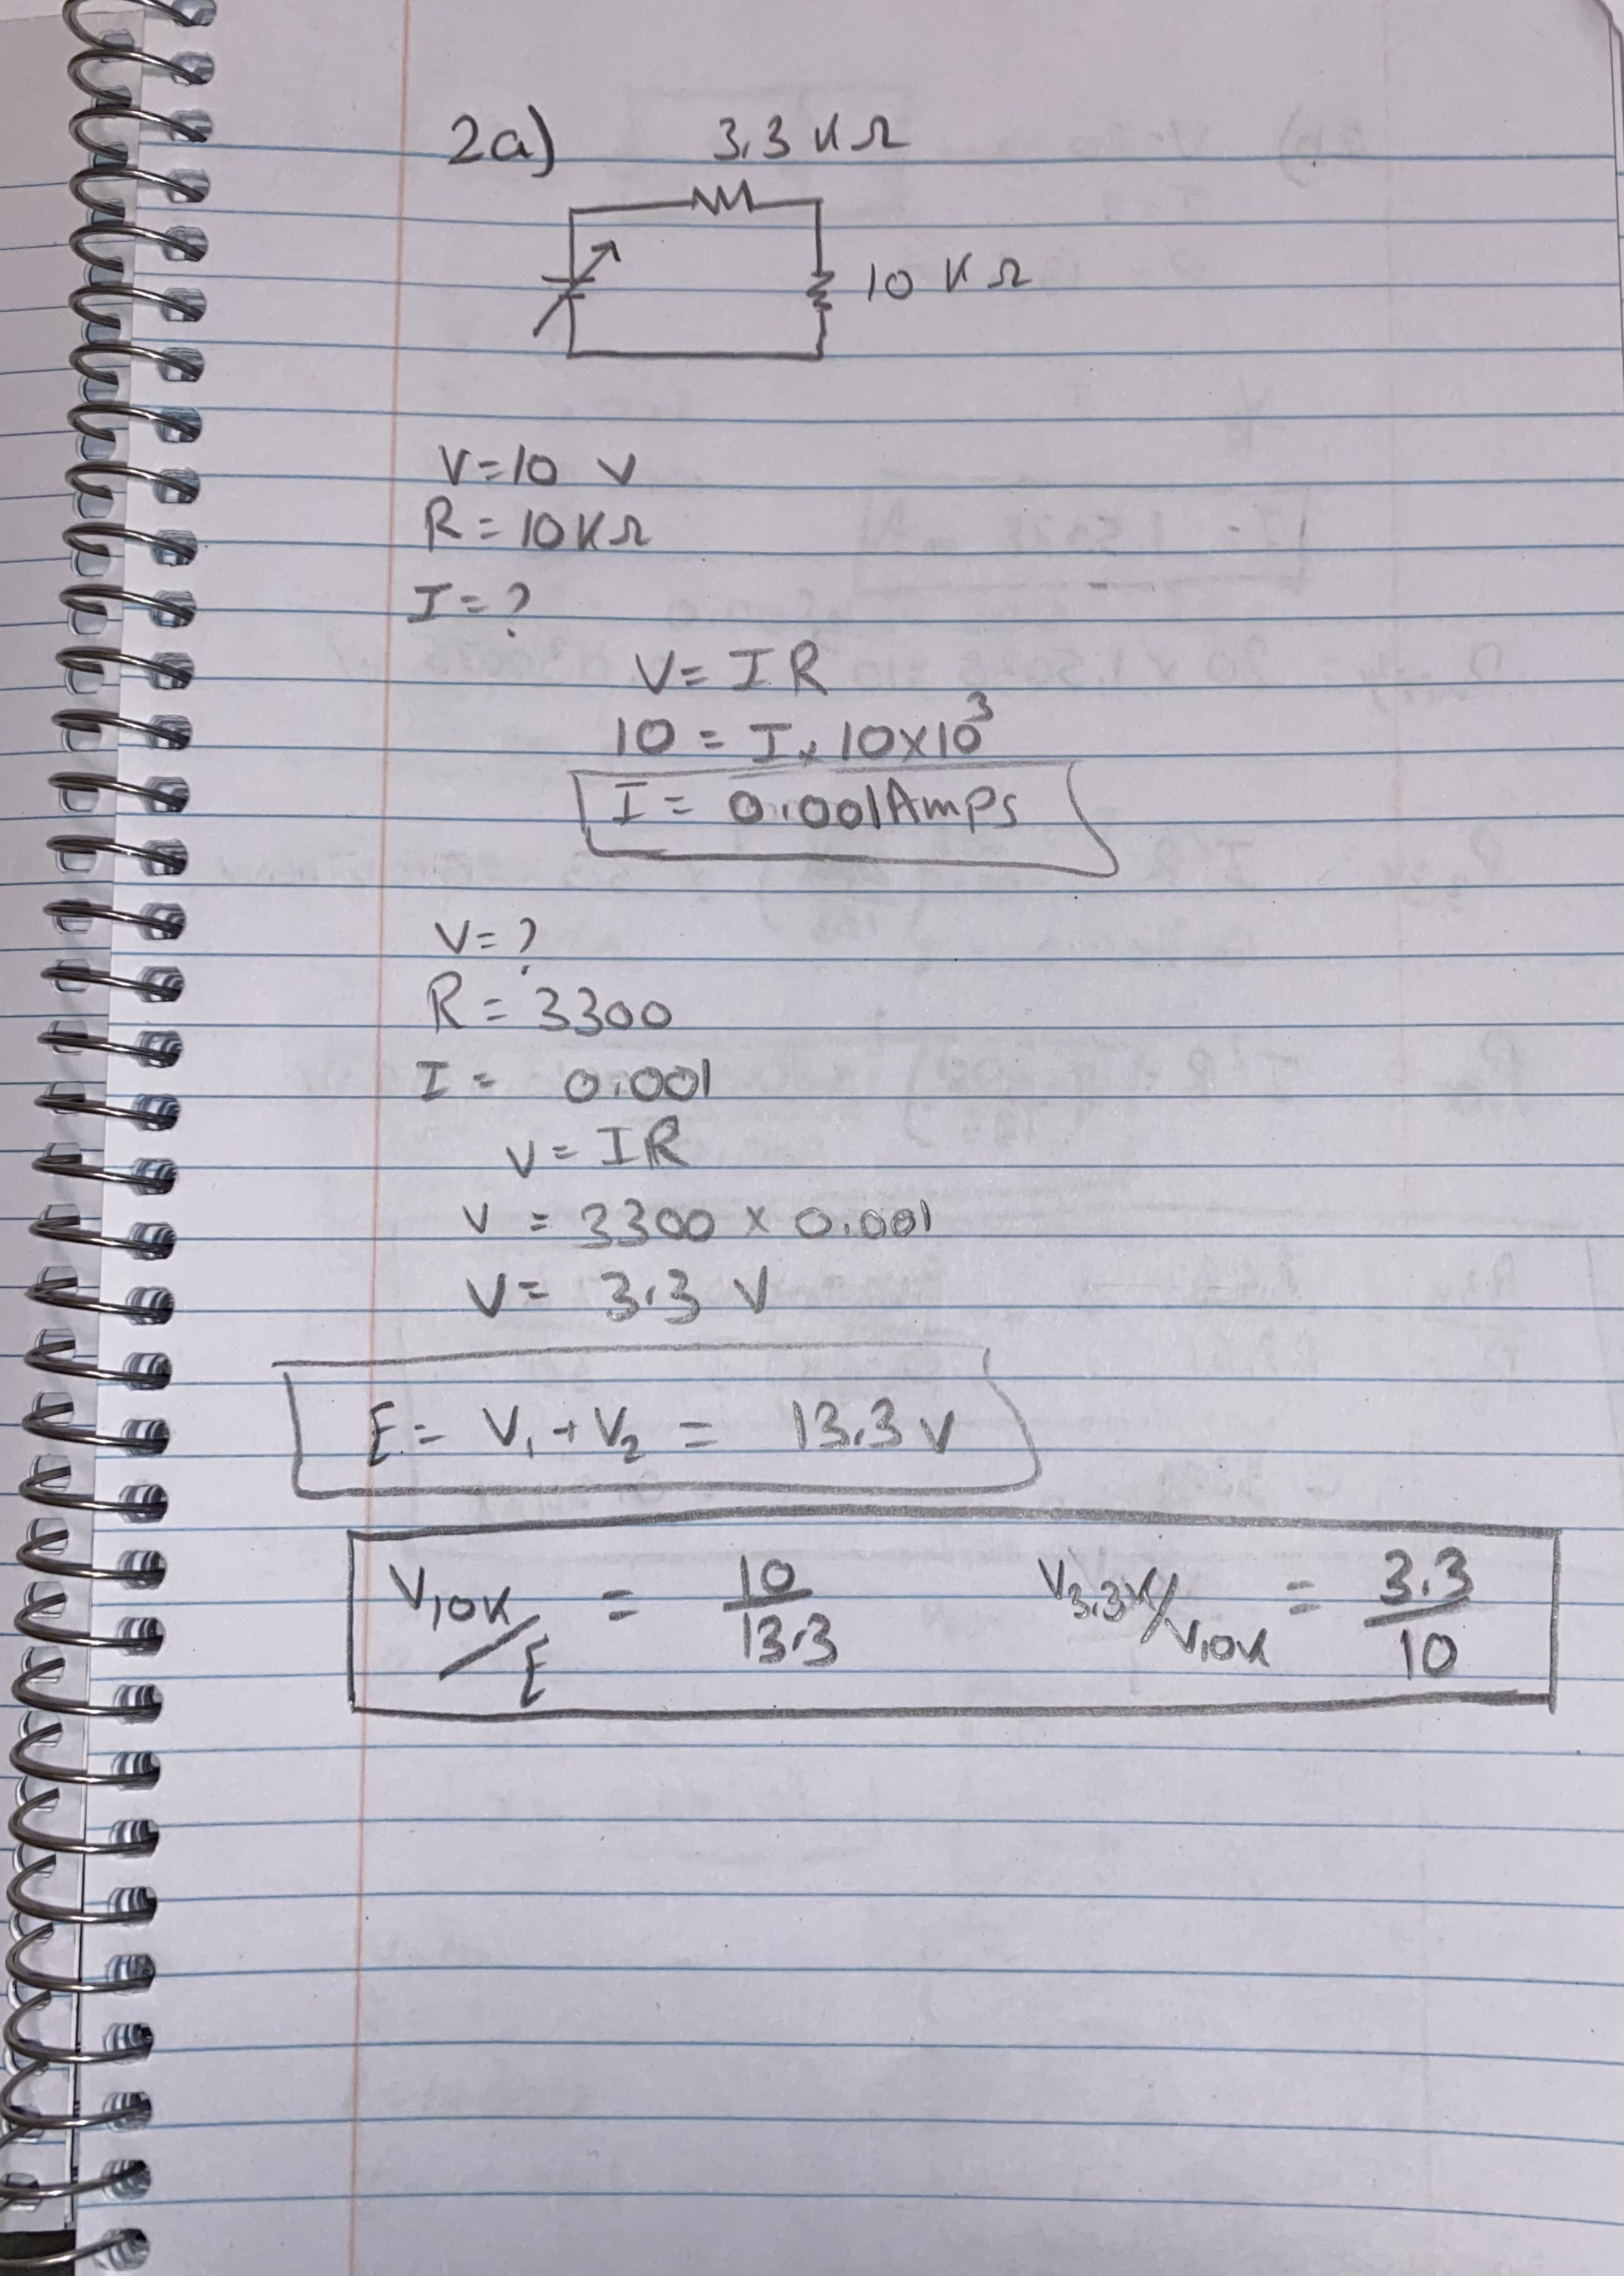 2a) 3.3 KΩ
10 KΩ
V=10 V
R = 10KΩ
I = ?
V= IR
10 = I × 10×10³
I = 0.001Amps
V= ?
R = 3300
I = 0.001
V= IR
V = 3300 × 0.001
V= 3.3 V
E = V₁ + V₂ = 13.3 V
V10K/E = 10/13.3 V3.3K/V10K = 3.3/10